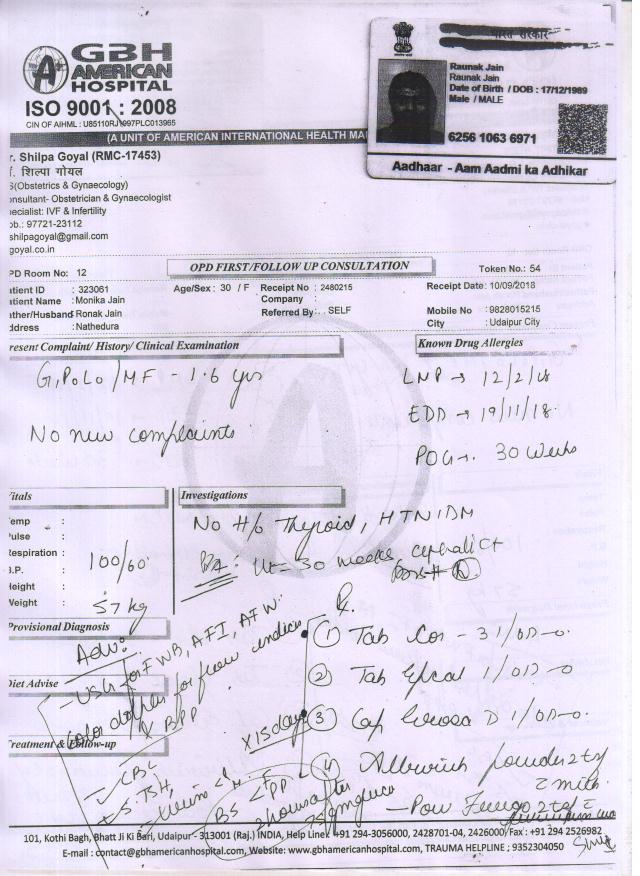 GBH
AMERICAN
HOSPITAL
ISO 9001 : 2008
CIN OF AIHML : U85110RJ1997PLC013965
(A UNIT OF AMERICAN INTERNATIONAL HEALTH MA
भारत सरकार
Raunak Jain
Raunak Jain
Date of Birth / DOB : 17/12/1989
Male / MALE
6256 1063 6971
Aadhaar - Aam Aadmi ka Adhikar
r. Shilpa Goyal (RMC-17453)
. शिल्पा गोयल
S(Obstetrics & Gynaecology)
onsultant- Obstetrician & Gynaecologist
pecialist: IVF & Infertility
ob.: 97721-23112
shilpagoyal@gmail.com
goyal.co.in
OPD FIRST/FOLLOW UP CONSULTATION
PD Room No: 12
Token No.: 54
atient ID : 323061
Age/Sex : 30 / F
Receipt No : 2480215
Receipt Date: 10/09/2018
atient Name : Monika Jain
Company :
ather/Husband Ronak Jain
Referred By: . SELF
Mobile No : 9828015215
ddress : Nathedura
City : Udaipur City
resent Complaint/ History/ Clinical Examination
Known Drug Allergies
G1P0L0/MF - 1.6 yrs
LMP → 12/2/18
EDD → 19/11/18
No new complaints
POG → 30 weeks
itals
Investigations
emp :
ulse :
Respiration :
B.P. : 100/60
Height :
Weight : 57 kg
No H/o Thyroid, HTN/DM
Ut = 30 weeks, cephalic
Provisional Diagnosis
Adv:
USG for FWB, AFI, AFW
color doppler for flow indices
BPP
Diet Advise
Treatment & Follow-up
CBC
S. TSH,
Urine
BS
2 hours after
75gm gluco
Rx
x 15 days
① Tab Cor - 3 1/OD
② Tab 1/OD
③ Cap D 1/OD
④ powder 2 tsf
c milk
Pow 2 tsf c
101, Kothi Bagh, Bhatt Ji Ki Bari, Udaipur - 313001 (Raj.) INDIA, Help Line : +91 294-3056000, 2428701-04, 2426000, Fax : +91 294 2526982
E-mail : contact@gbhamericanhospital.com, Website: www.gbhamericanhospital.com, TRAUMA HELPLINE ; 9352304050